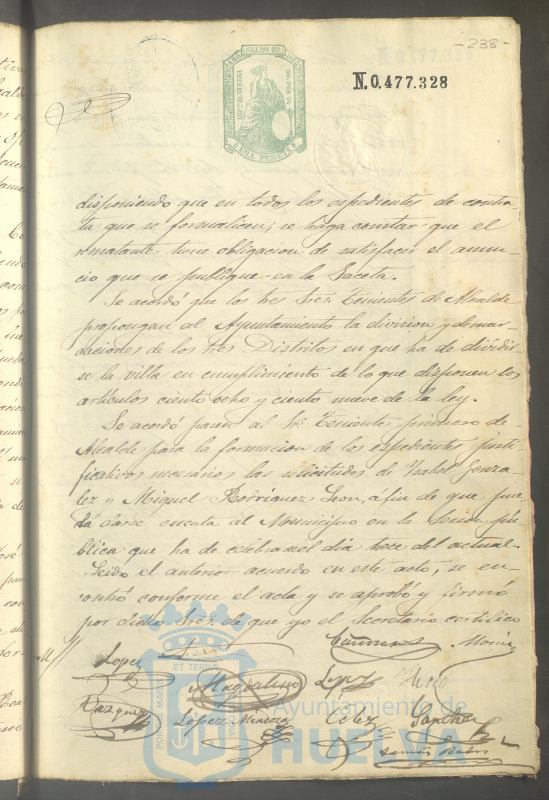 -238-
N.0,477.328
UNA PESETA
disponiendo que en todos los espedientes de contra-
ta que se formalicen, se haga constar que el
rematante tiene obligacion de satisfacer el anun-
cio que se publique en la Gaceta.
Se acordó que los tres Sres. Tenientes de Alcalde
propongan al Ayuntamiento la division y demar-
caciones de los tres Distritos en que ha de dividir-
se la villa en cumplimiento de lo que disponen los
artículos ciento ocho y ciento nueve de la ley.
Se acordó pasen al Sr. Teniente primero de
Alcalde para la formacion de los espedientes justi-
ficativos necesarios las solicitudes de Ysabel Gonza-
lez y Miguel Rodriguez Leon, a fin de que pue-
da darse cuenta al Municipio en la Sesion pú-
blica que ha de celebrar el dia trece del actual.
Leido el anterior acuerdo en este acto, se en-
contró conforme el acta y se aprobó y firmó
por dichos Sres. de que yo el Secretario certifico
Lopez
Magdaleno
Lopez
Vazquez
Lopez Mendoza
Sanchez
ET TERRÆ
PORTUS MARIS
Ayuntamiento de
HUELVA